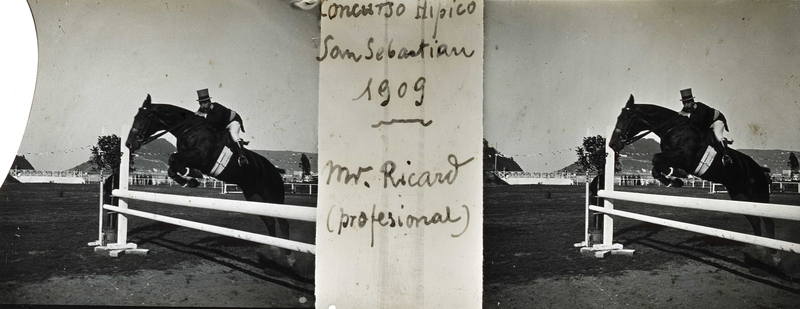 Concurso Hipico
San Sebastian
1909
Mr. Ricard
(profesional)